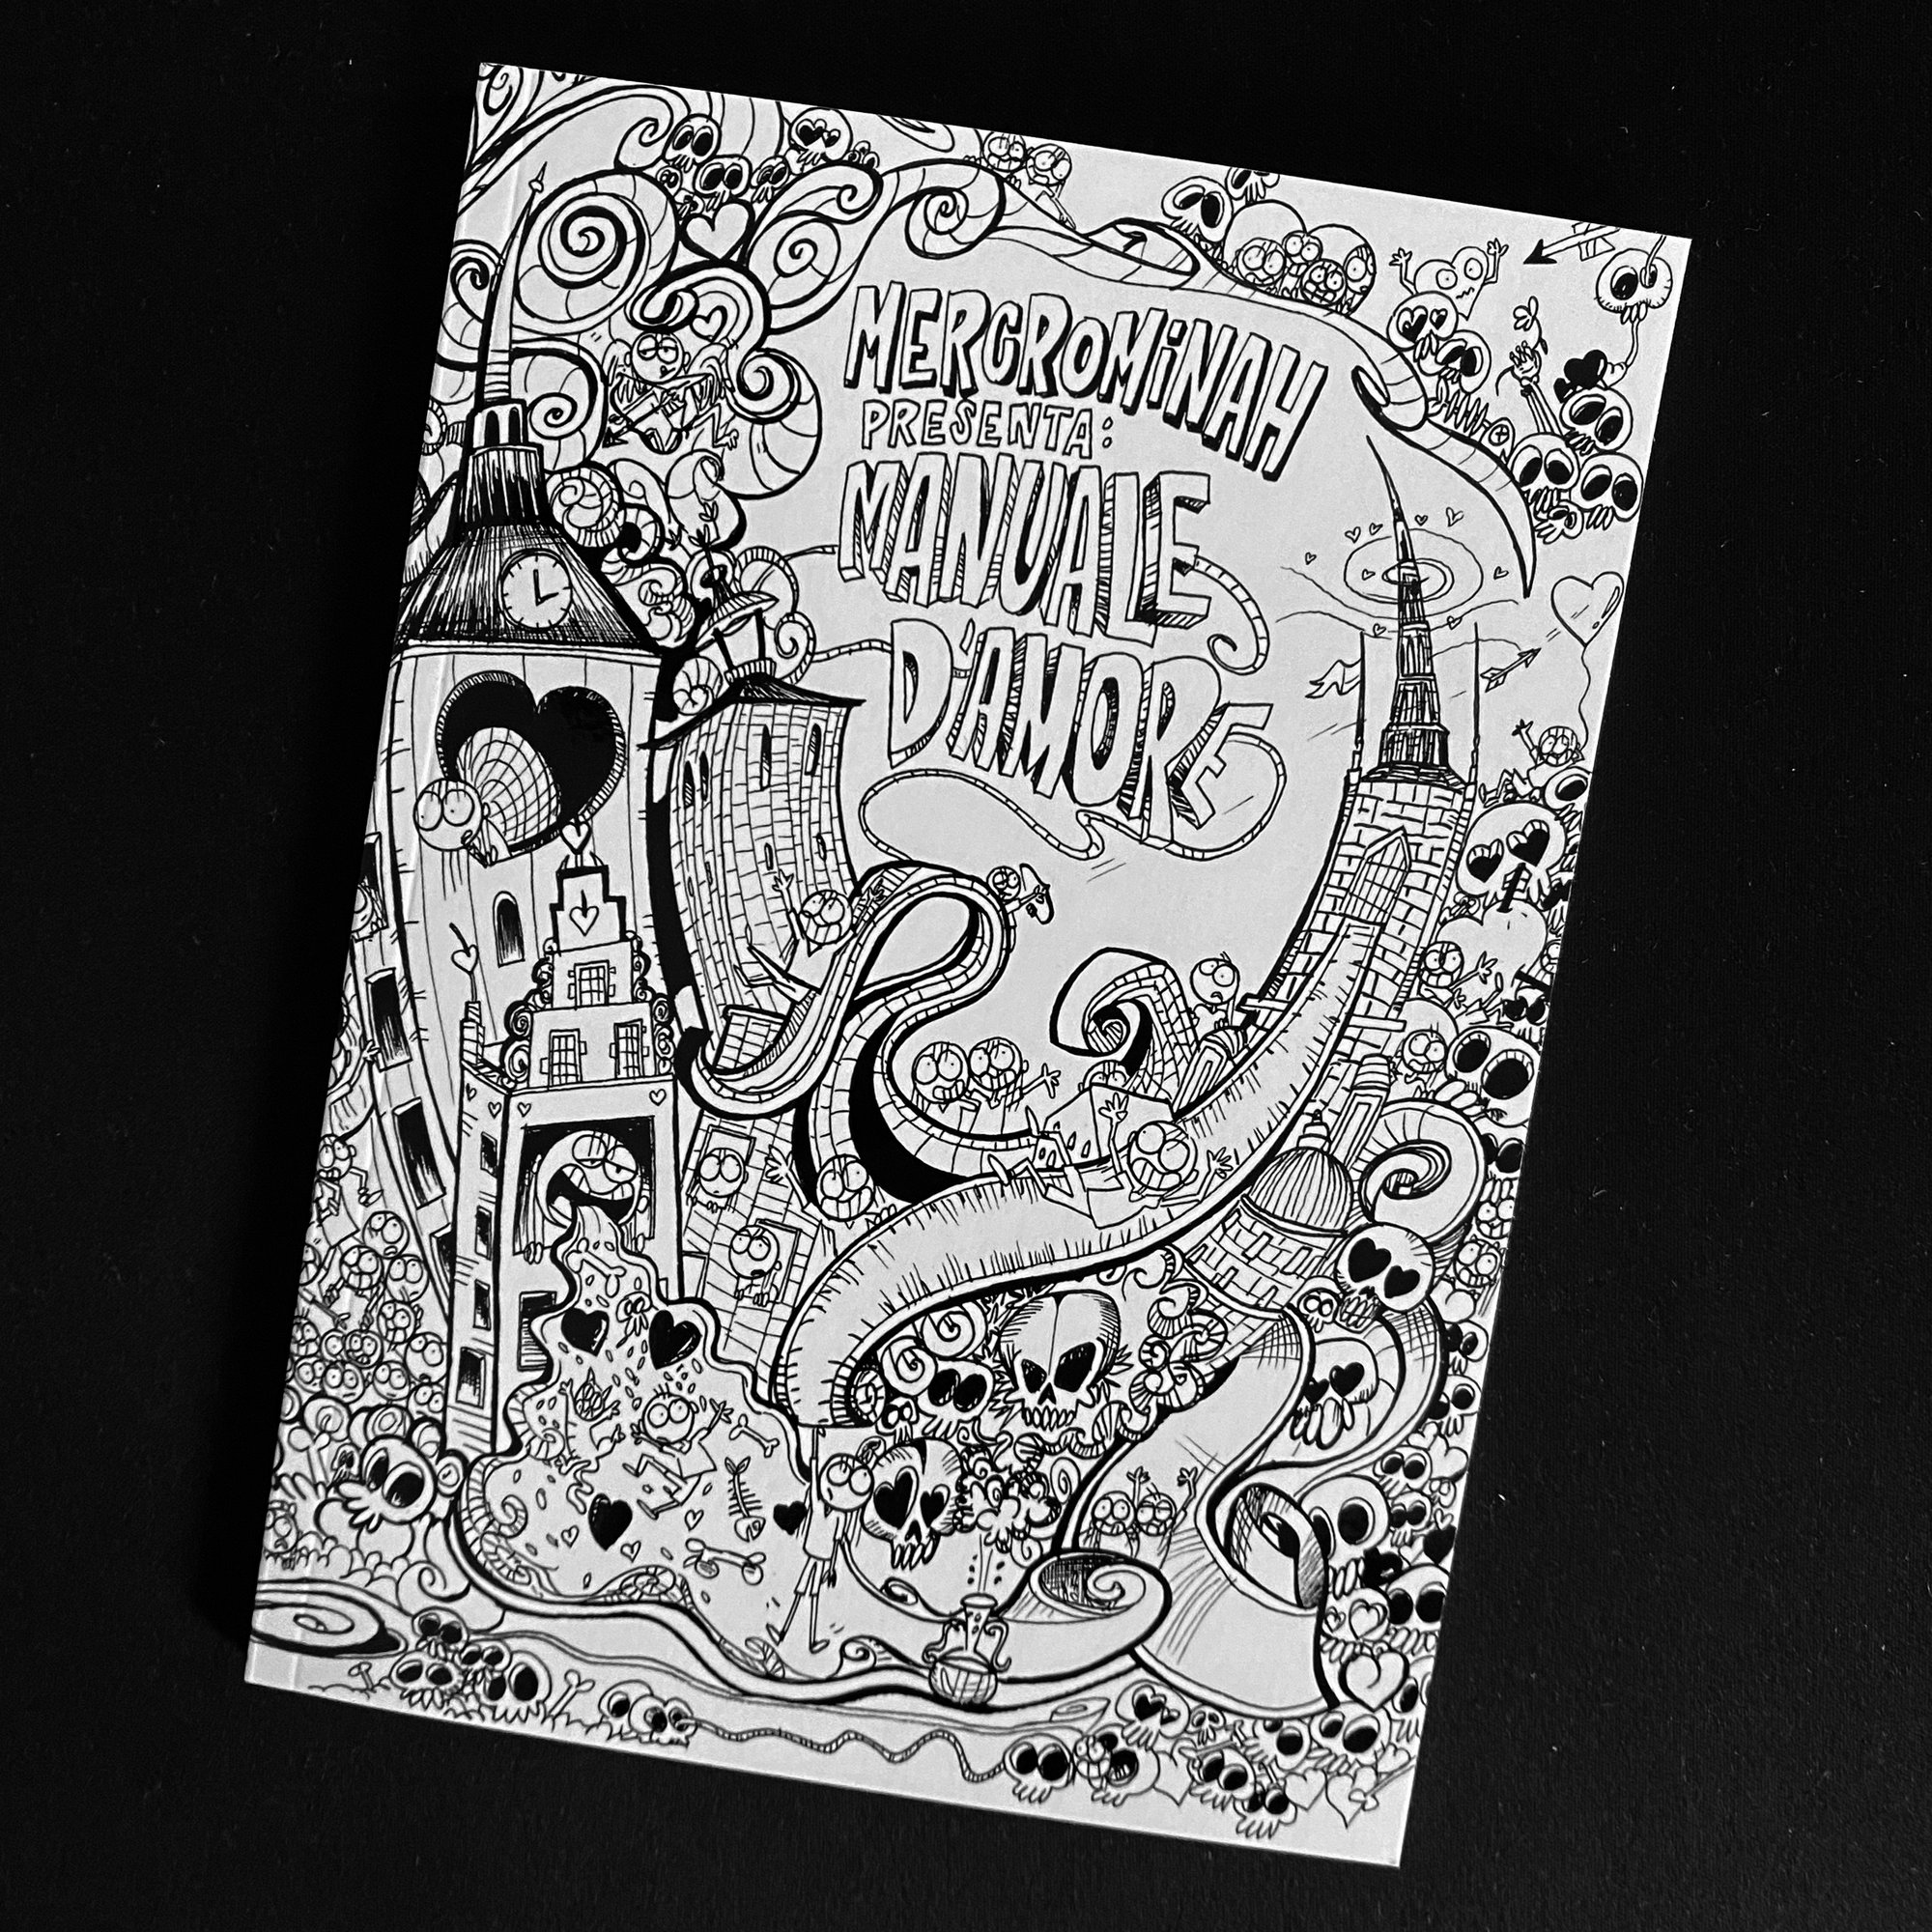 MERCROMiNAH
PRESENTA:
MANUALE
D'AMORE